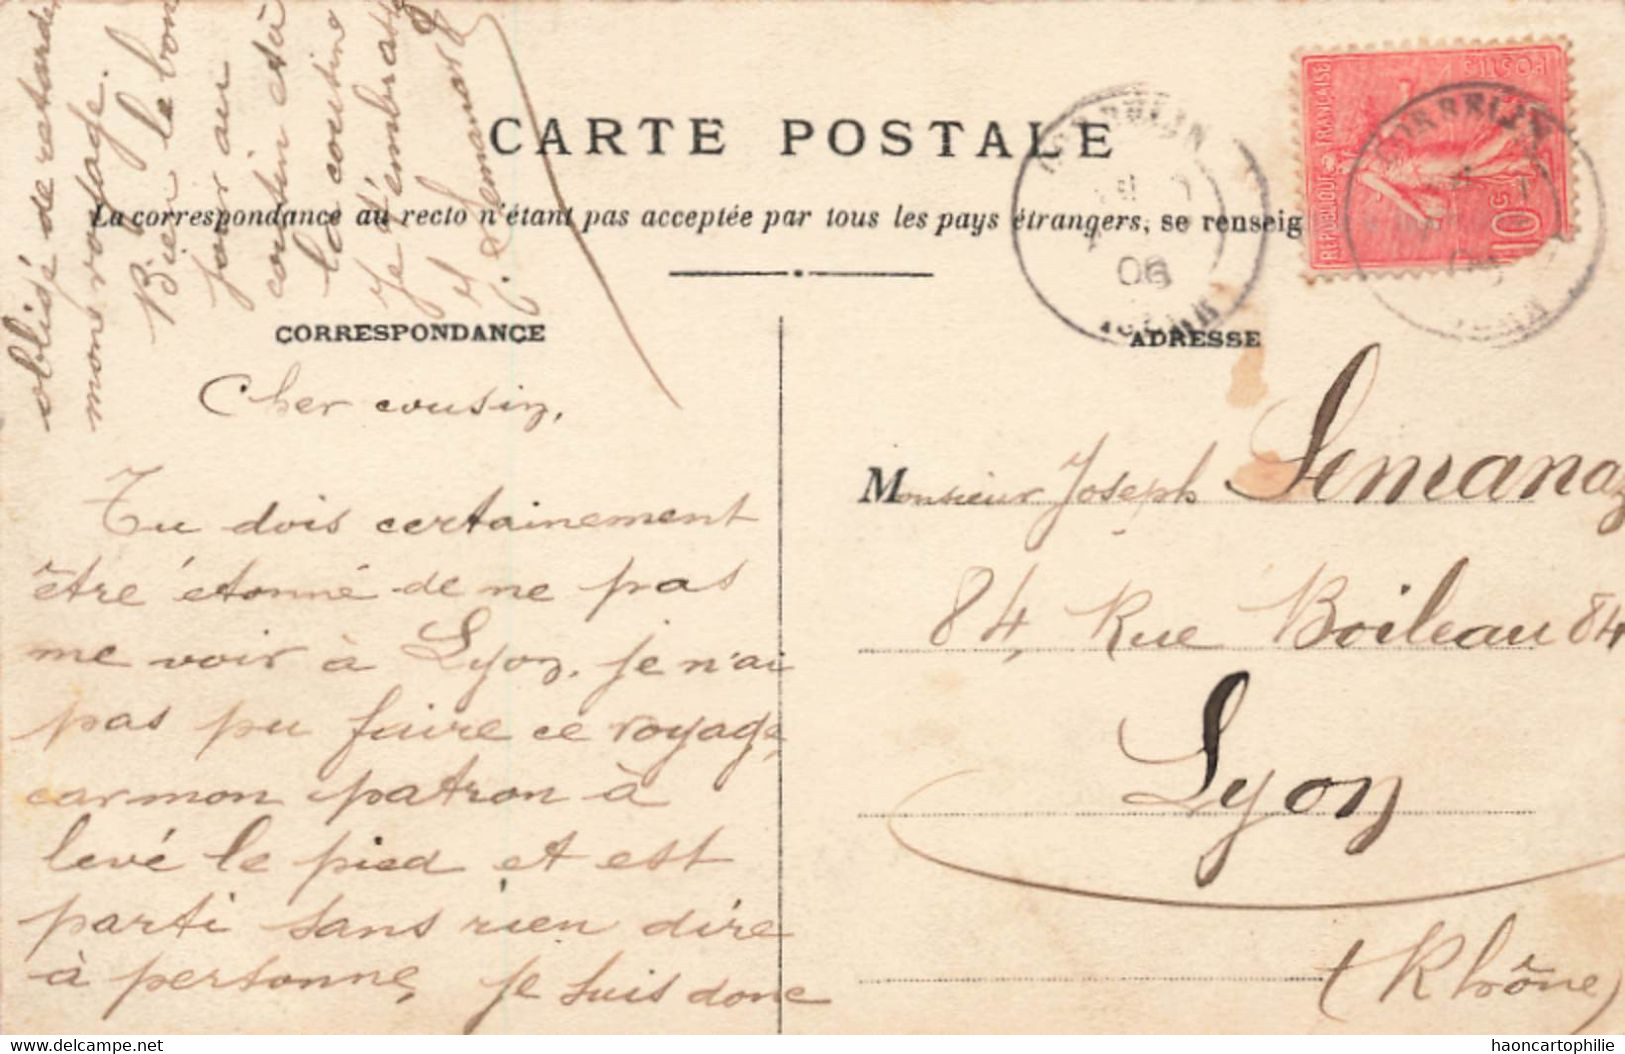 CARTE POSTALE
La correspondance au recto n'étant pas acceptée par tous les pays étrangers, se renseig
CORRESPONDANCE
Cher cousin,
Tu dois certainement
être étonné de ne pas
me voir à Lyon. je n'ai
pas pu faire ce voyage,
car mon patron à
levé le pied et est
parti sans rien dire
à personne, je suis donc
obligé de retarder
mon voyage.
Bien le bon
Bien
jour au
cousin et à
la cousine
Je t'embrasse
J. Semanaz
ADRESSE
Monsieur Joseph Semanaz
84, Rue Boileau 84
Lyon
(Rhône)
REPUBLIQUE FRANÇAISE
POSTES
10c
CORBELIN
06
ISERE
CORBELIN
delcampe.net
haoncartophilie